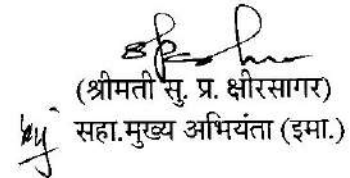 (श्रीमती सु. प्र. क्षीरसागर)
सहा.मुख्य अभियंता (इमा.)